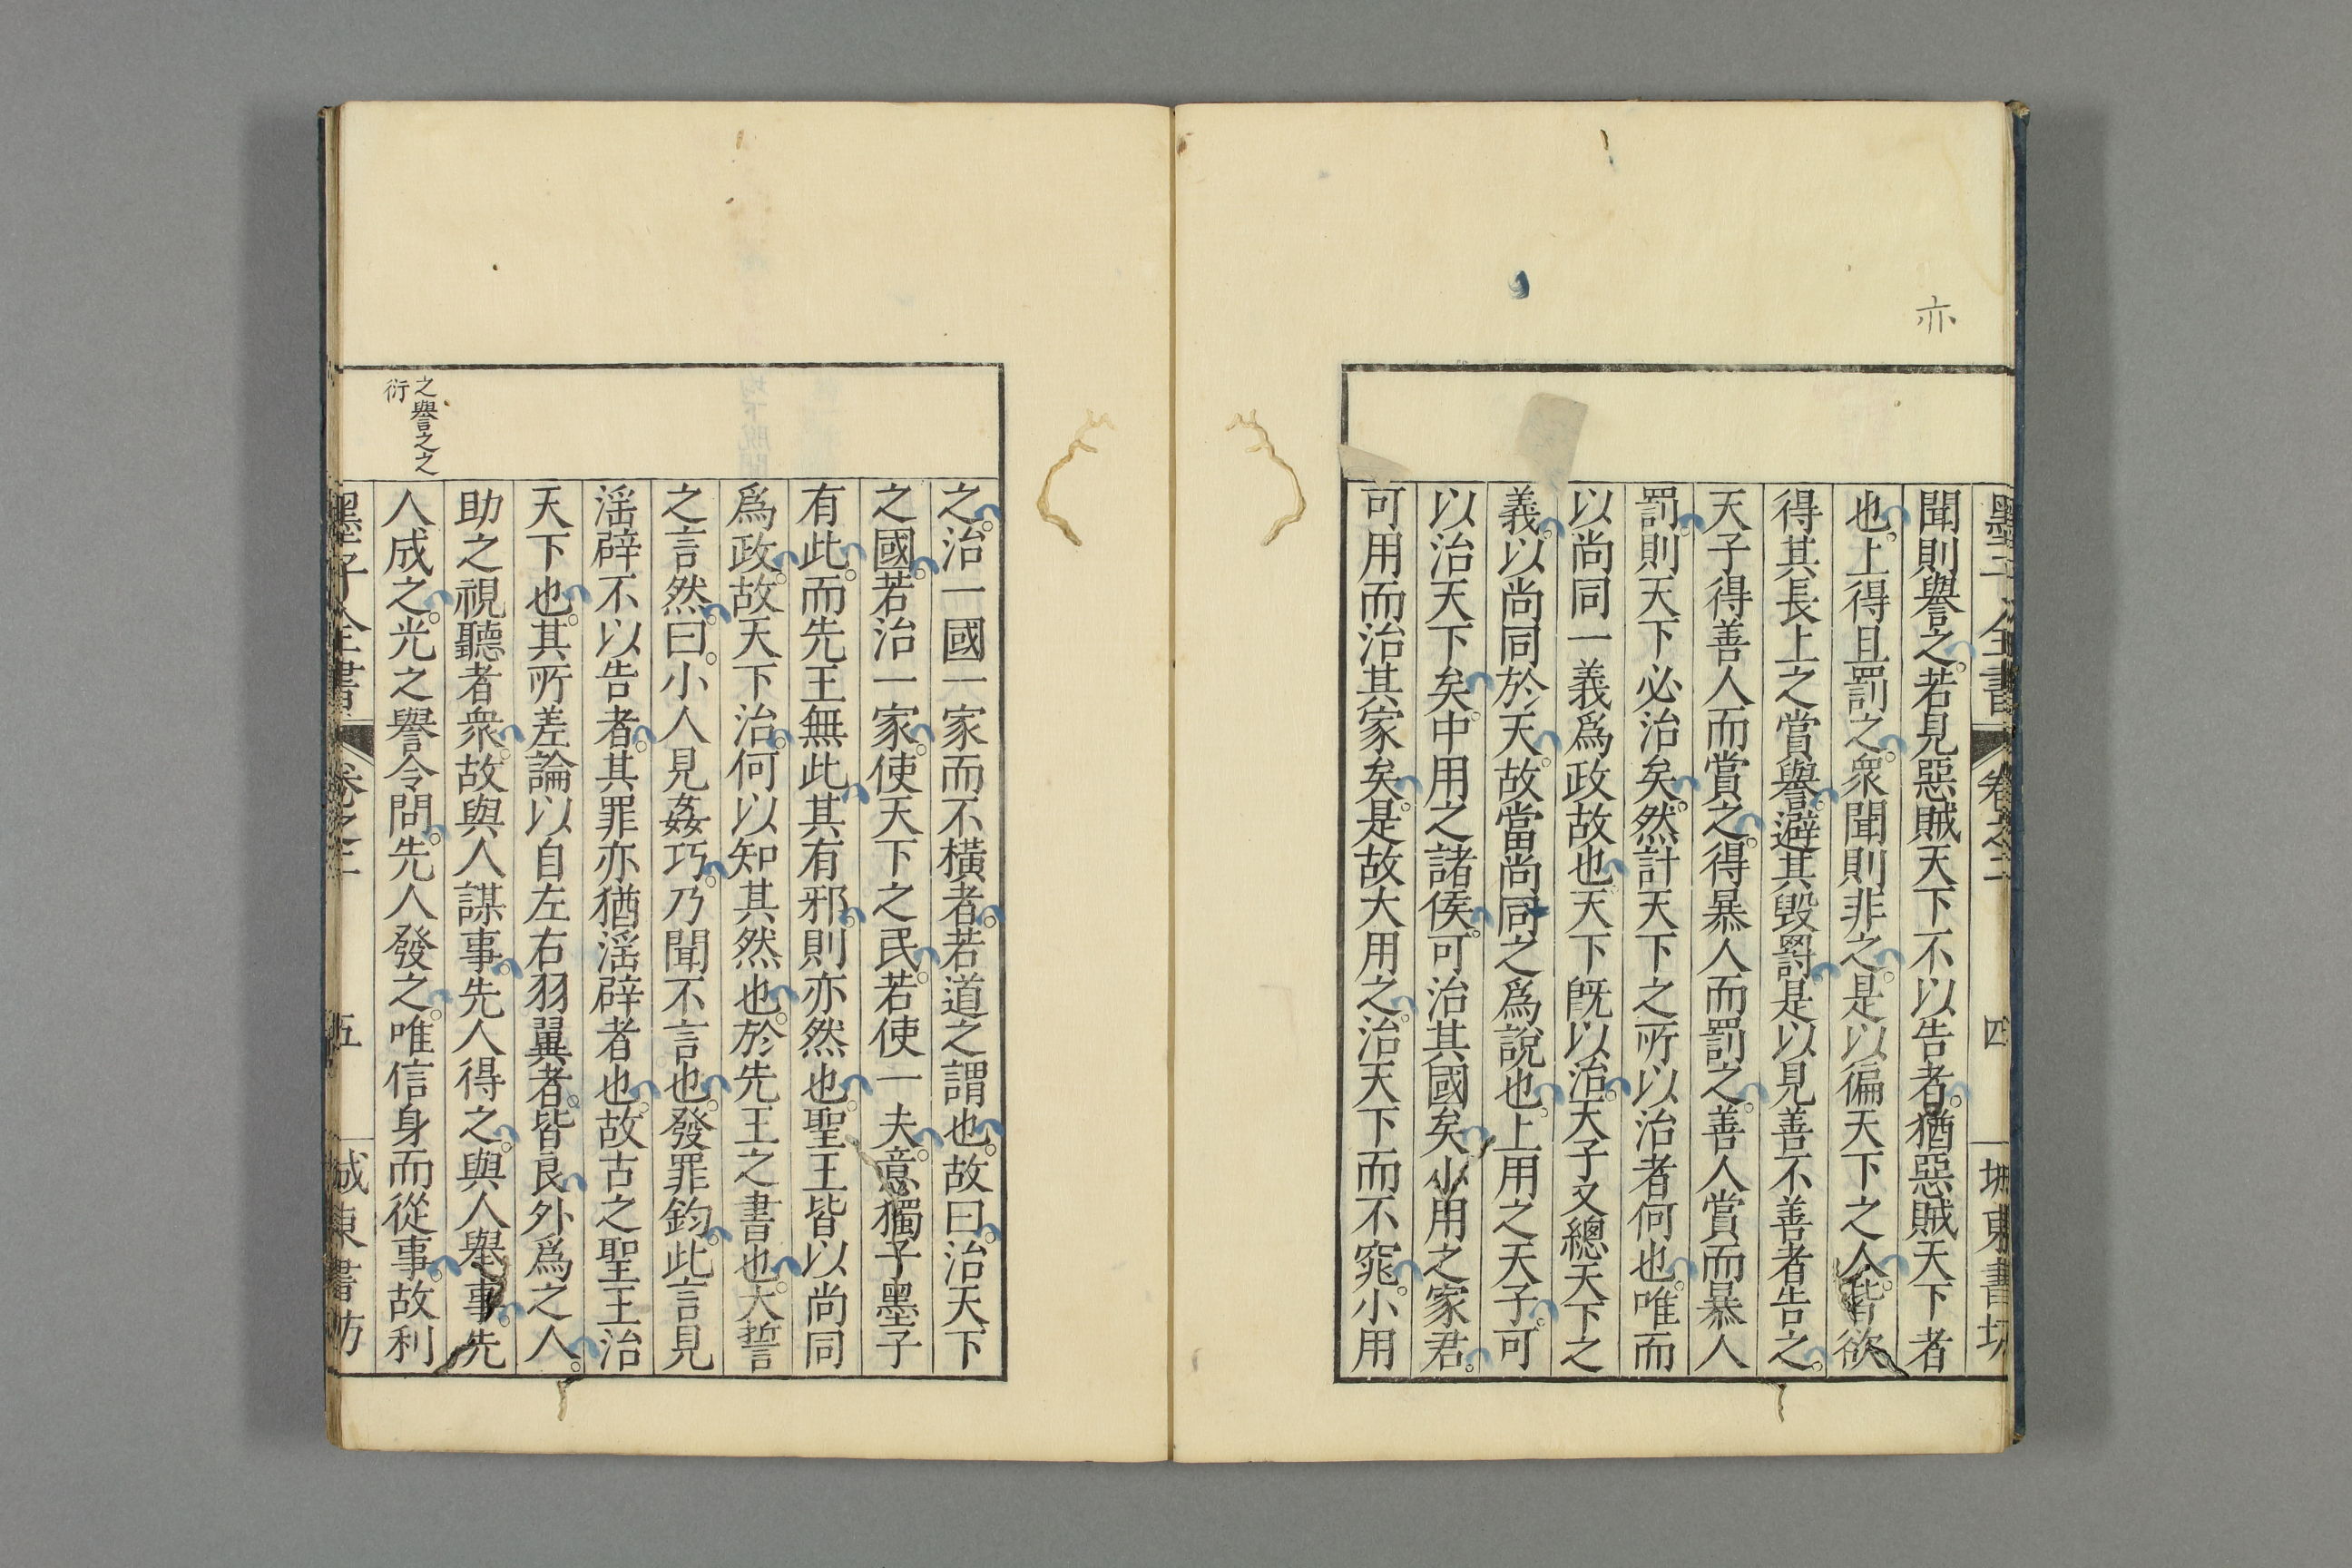 亦
墨子全書 卷之三 四 城東書坊
聞則譽之。若見惡賊天下不以告者。猶惡賊天下者
也。上得且罰之。衆聞則非之。是以徧天下之人。皆欲
得其長上之賞譽。避其毀罰。是以見善不善者告之。
天子得善人而賞之。得暴人而罰之。善人賞而暴人
罰。則天下必治矣。然計天下之所以治者何也。唯而
以尚同一義爲政故也。天下既以治。天子又總天下之
義。以尚同於天。故當尚同之爲說也。上用之天子。可
以治天下矣。中用之諸侯。可治其國矣。小用之家君。
可用而治其家矣。是故大用之。治天下而不窕。小用
之。治一國一家而不橫者。若道之謂也。故曰。治天下
之國。若治一家。使天下之民。若使一夫。意獨子墨子
有此。而先王無此其有邪。則亦然也。聖王皆以尚同
爲政。故天下治。何以知其然也。於先王之書也。大誓
之言然。曰。小人見姦巧。乃聞不言也。發罪鈞。此言見
淫辟不以告者。其罪亦猶淫辟者也。故古之聖王治
天下也。其所差論以自左右羽翼者。皆良。外爲之人。
助之視聽者衆。故與人謀事。先人得之。與人舉事。先
之譽之之
衍
人成之。光之譽令問。先人發之。唯信身而從事。故利
墨子全書 卷之三 五 城東書坊